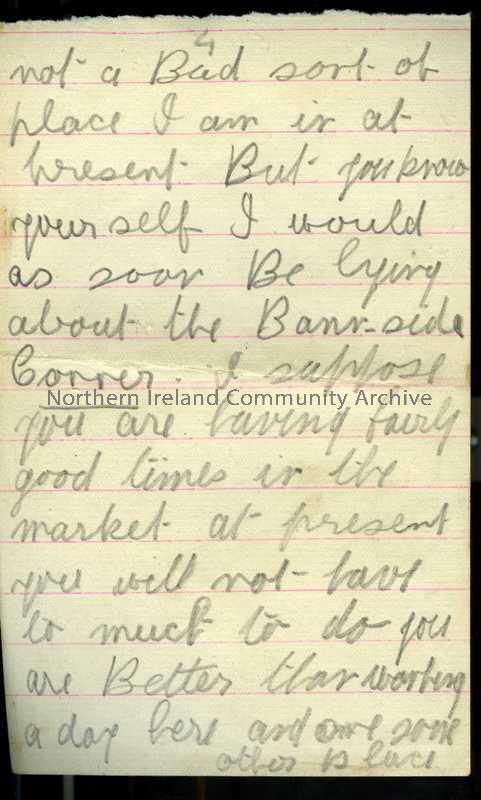 4
not a Bad sort of
place I am in at
present But you know
yourself I would
as soon Be lying
about the Bann-side
Corner. I suppose
Northern Ireland Community Archive
you are having fairly
good times in the
market at present
you will not have
to much to do you
are Better than working
a day here and one some
other place